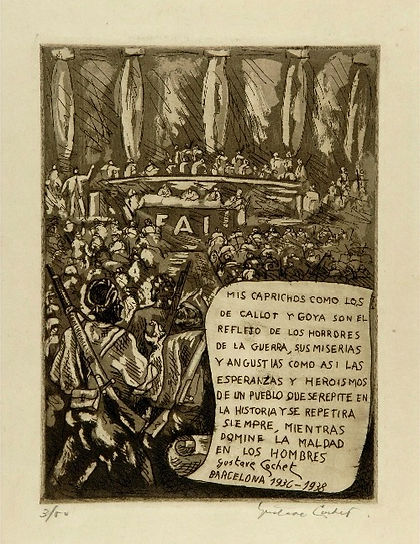 FAI
MIS CAPRICHOS COMO LOS
DE CALLOT Y GOYA SON EL
REFLEJO DE LOS HORRORES
DE LA GUERRA, SUS MISERIAS
Y ANGUSTIAS COMO ASI LAS
ESPERANZAS Y HEROISMOS
DE UN PUEBLO QUE SE REPITE EN
LA HISTORIA Y SE REPETIRA
SIEMPRE, MIENTRAS
DOMINE LA MALDAD
EN LOS HOMBRES
Gustave Cochet
BARCELONA 1936-1938
Gustave Cochet